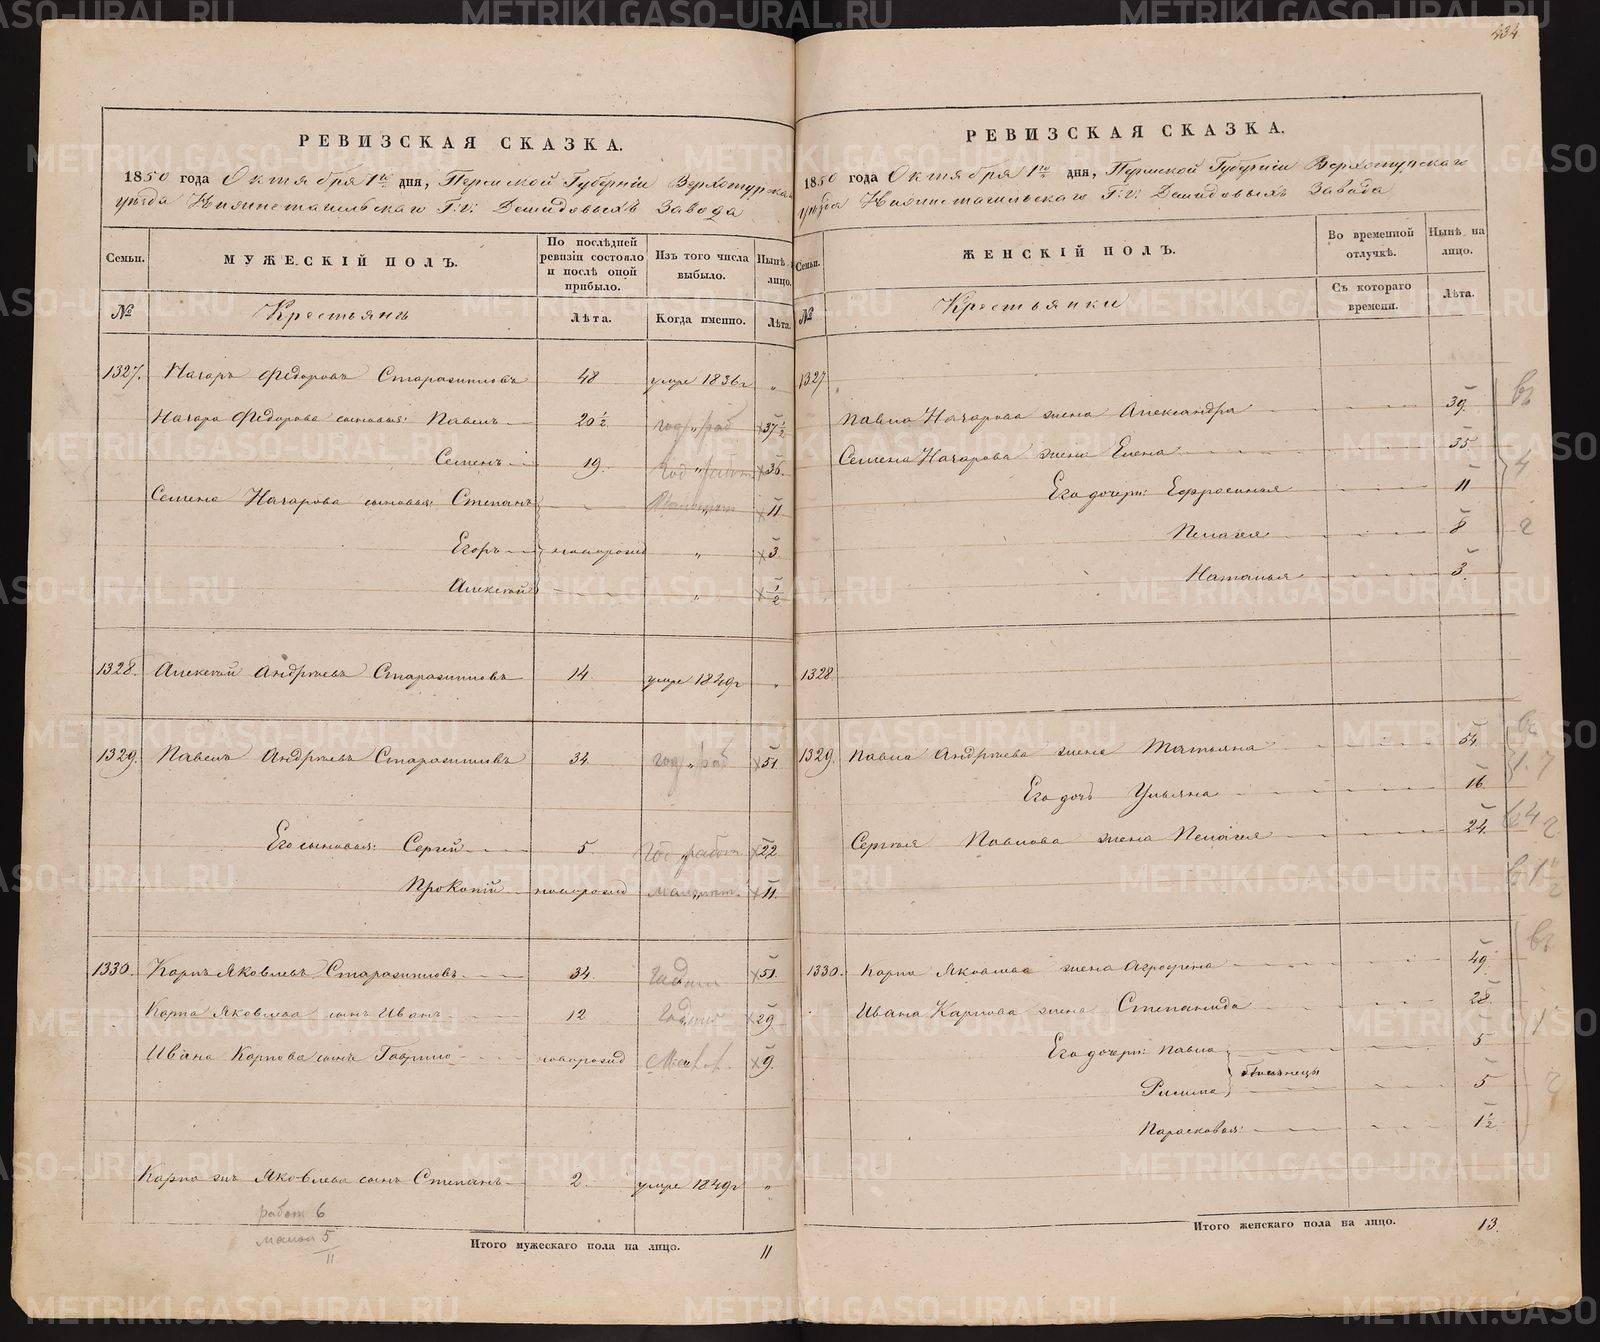 434
РЕВИЗСКАЯ СКАЗКА.
1850 года Октября 1го дня, Пермской Губерніи Верхотурскаго
уѣзда Нижнетагильскаго Г.г. Демидовыхъ Завода
Семьи.
МУЖЕСКІЙ ПОЛЪ.
По послѣдней ревизіи состояло и послѣ оной прибыло.
Изъ того числа выбыло.
Нынѣ на лицо.
№
Крестьянъ
Лѣта.
Когда именно.
Лѣта.
1327. Назаръ Ѳедоровъ 48 умре 1836г „
Назара Ѳедорова сыновья: Павелъ 20 1/2 год. „ раб. 37 1/2
Семенъ 19. год. „ работ 36.
Семена Назарова сыновья: Степанъ „ 11
Егоръ новорожд „ 3
Алексѣй „ 1/2
1328. Алексѣй Андрѣевъ 14 умре 1849г „
1329. Павелъ Андрѣевъ 34 год „ раб 51
Его сыновья: Сергѣй 5 год. работ 22
Прокопій новорожд малолѣт. 11.
1330. Карпъ Яковлевъ 34. 51
Карпа Яковлева сынъ Иванъ 12 29
Ивана Карпова сынъ Гаврило новорожд 9.
Карпа жъ Яковлева сынъ Степанъ 2. умре 1849г „
работ 6
малол 5
11
Итого мужескаго пола на лицо. 11
РЕВИЗСКАЯ СКАЗКА.
1850 года Октября 1го дня, Пермской Губерніи Верхотурскаго
уѣзда Нижнетагильскаго Г.г. Демидовыхъ Завода
Семьи.
ЖЕНСКІЙ ПОЛЪ.
Во временной отлучкѣ.
Нынѣ на лицо.
№
Крестьянки
Съ котораго времени.
Лѣта.
1327
Павла Назарова жена Александра 39.
Семена Назарова жена Елена 35
Его дочери: Ефросинья 11
Пелагея 8
Наталья 3.
1328
1329. Павла Андрѣева жена Татьяна 54
Его дочь Ульяна 16
Сергѣя Павлова жена Пелагея 24.
1330. Карпа Яковлева жена Агрофена 49
Ивана Карпова жена Степанида 28.
Его дочери: Павла 5
близнецы
5
Парасковья: 1 1/2
Итого женскаго пола на лицо. 13.
METRIKI.GASO-URAL.RU